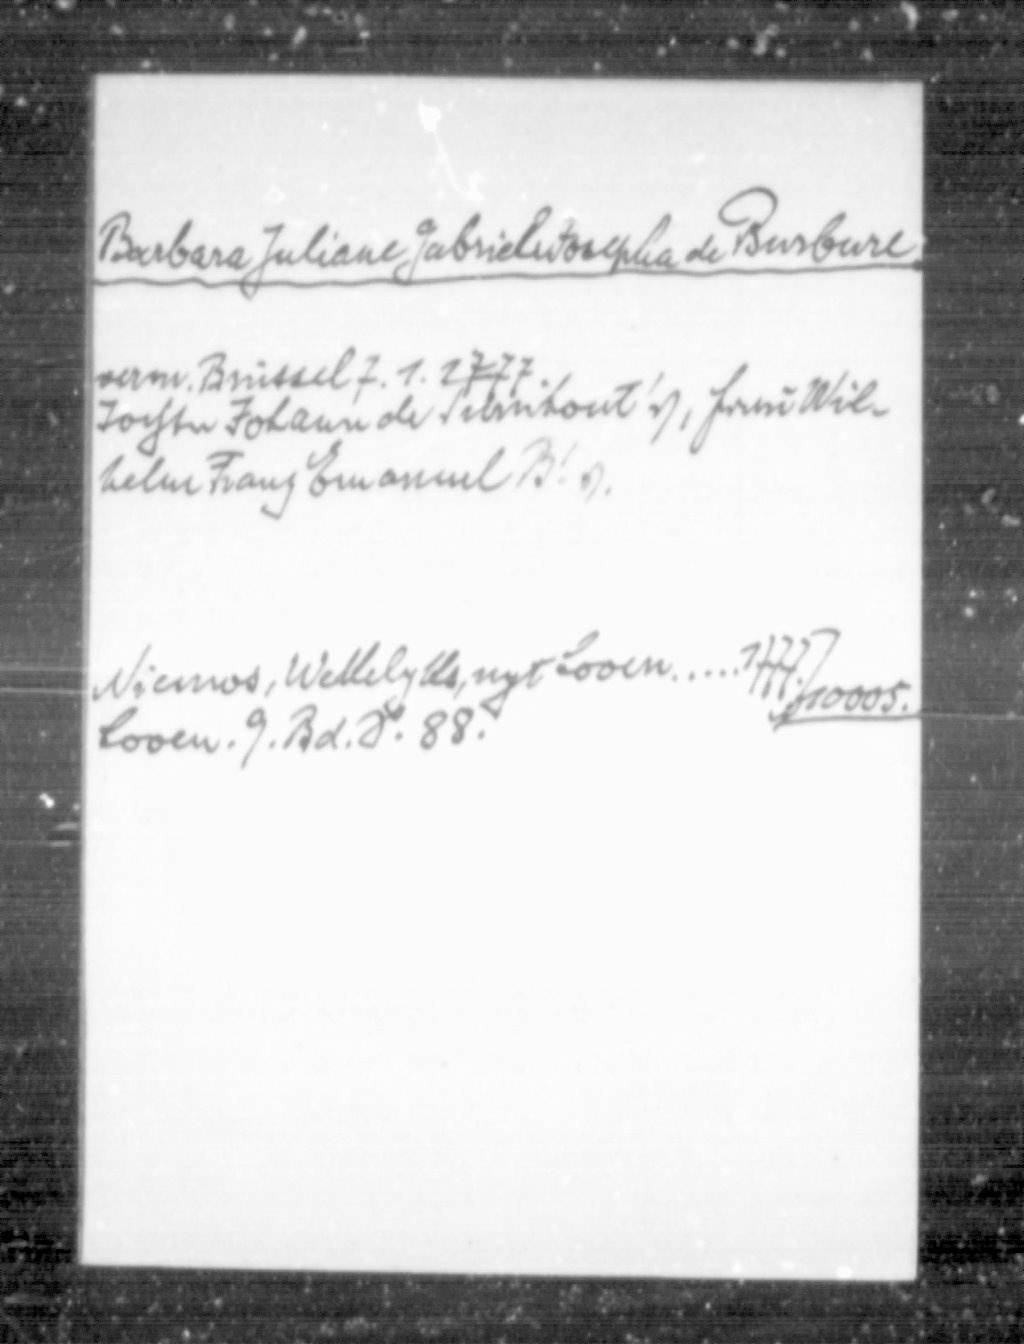 Barbara Juliane Gabriele Josepha de Burbure.
verm. Brüssel 7. 1. 1777.
Tochter Johann de Turnhout's, Frau Wil-
helm Franz Emanuel B's.
Looen ..... 1777
Looen. 9. Bd. S. 88. 10005.